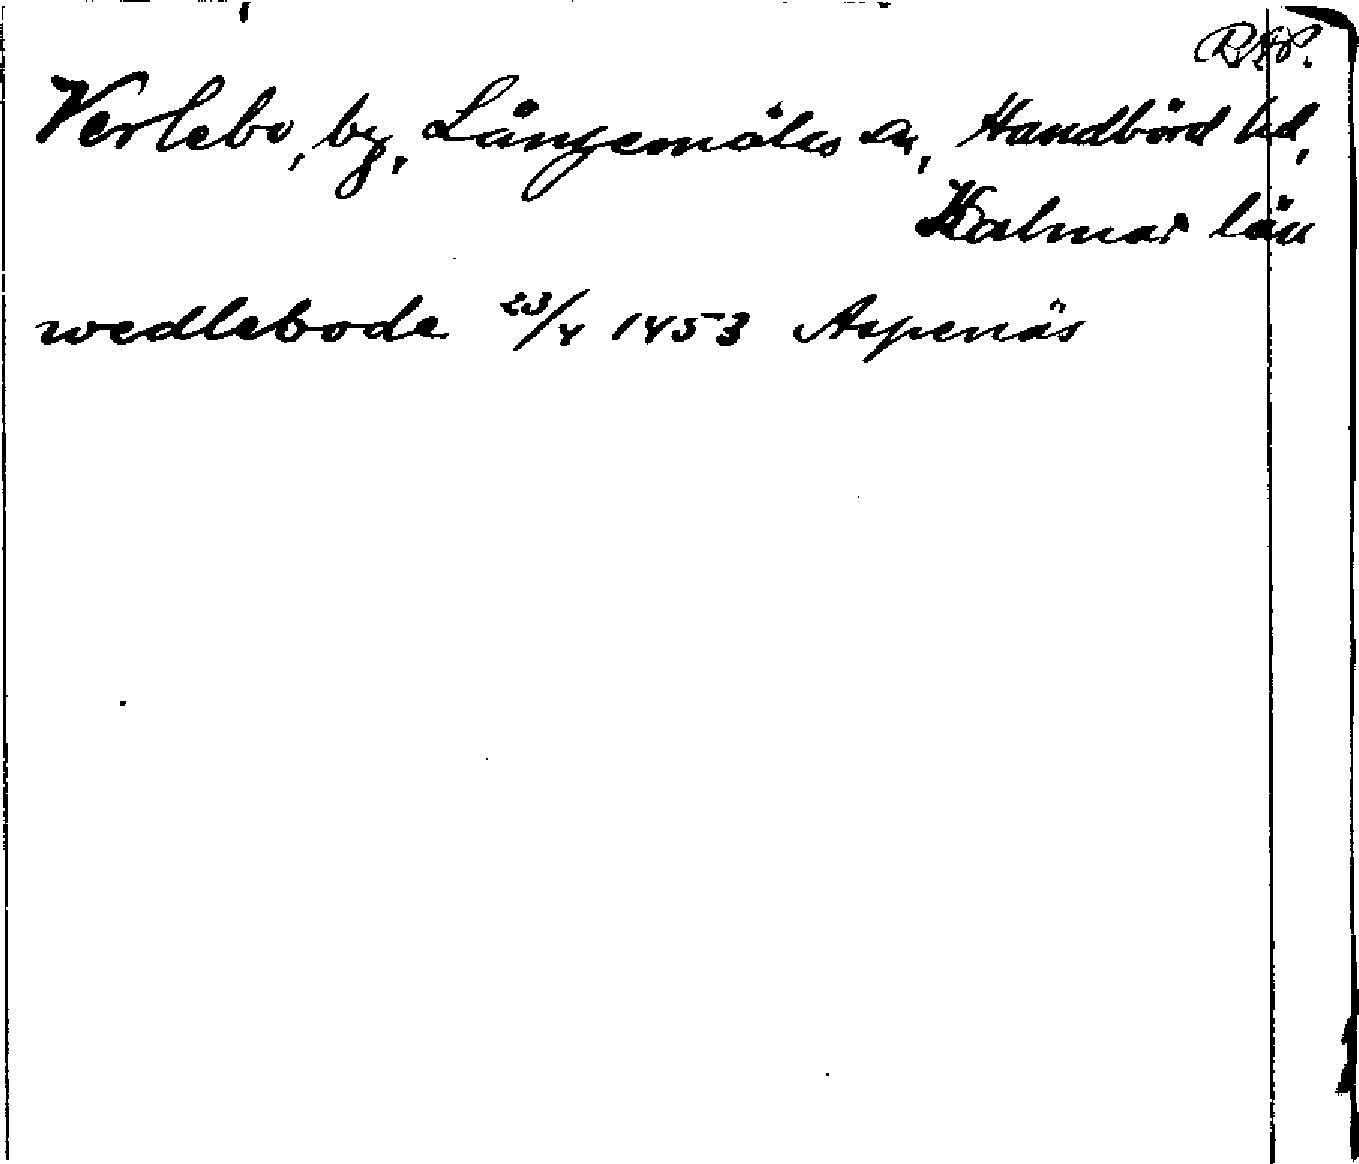 Verlebo, by, Långemåla sn, Handbörd hd,
Kalmar län
wedlebode 23/4 1453 Aspenäs